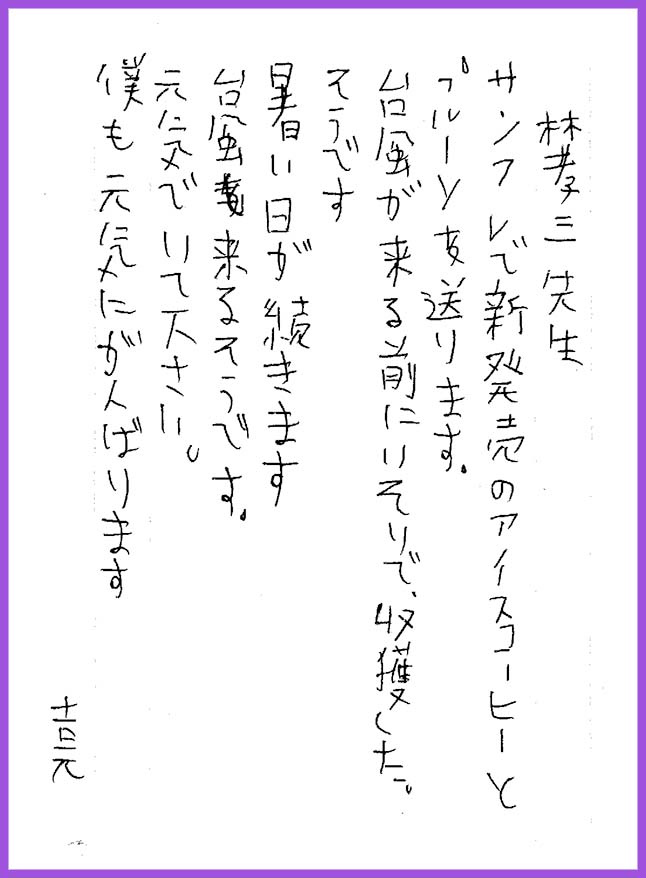 林孝三先生
サンフレで新発売のアイスコーヒーと
プルーンを送ります。
台風が来る前にいそりで、収獲した。
そうです
暑い日が続きます
台風も来るそうです。
元気でいて下さい。
僕も元気にがんばります
吉元